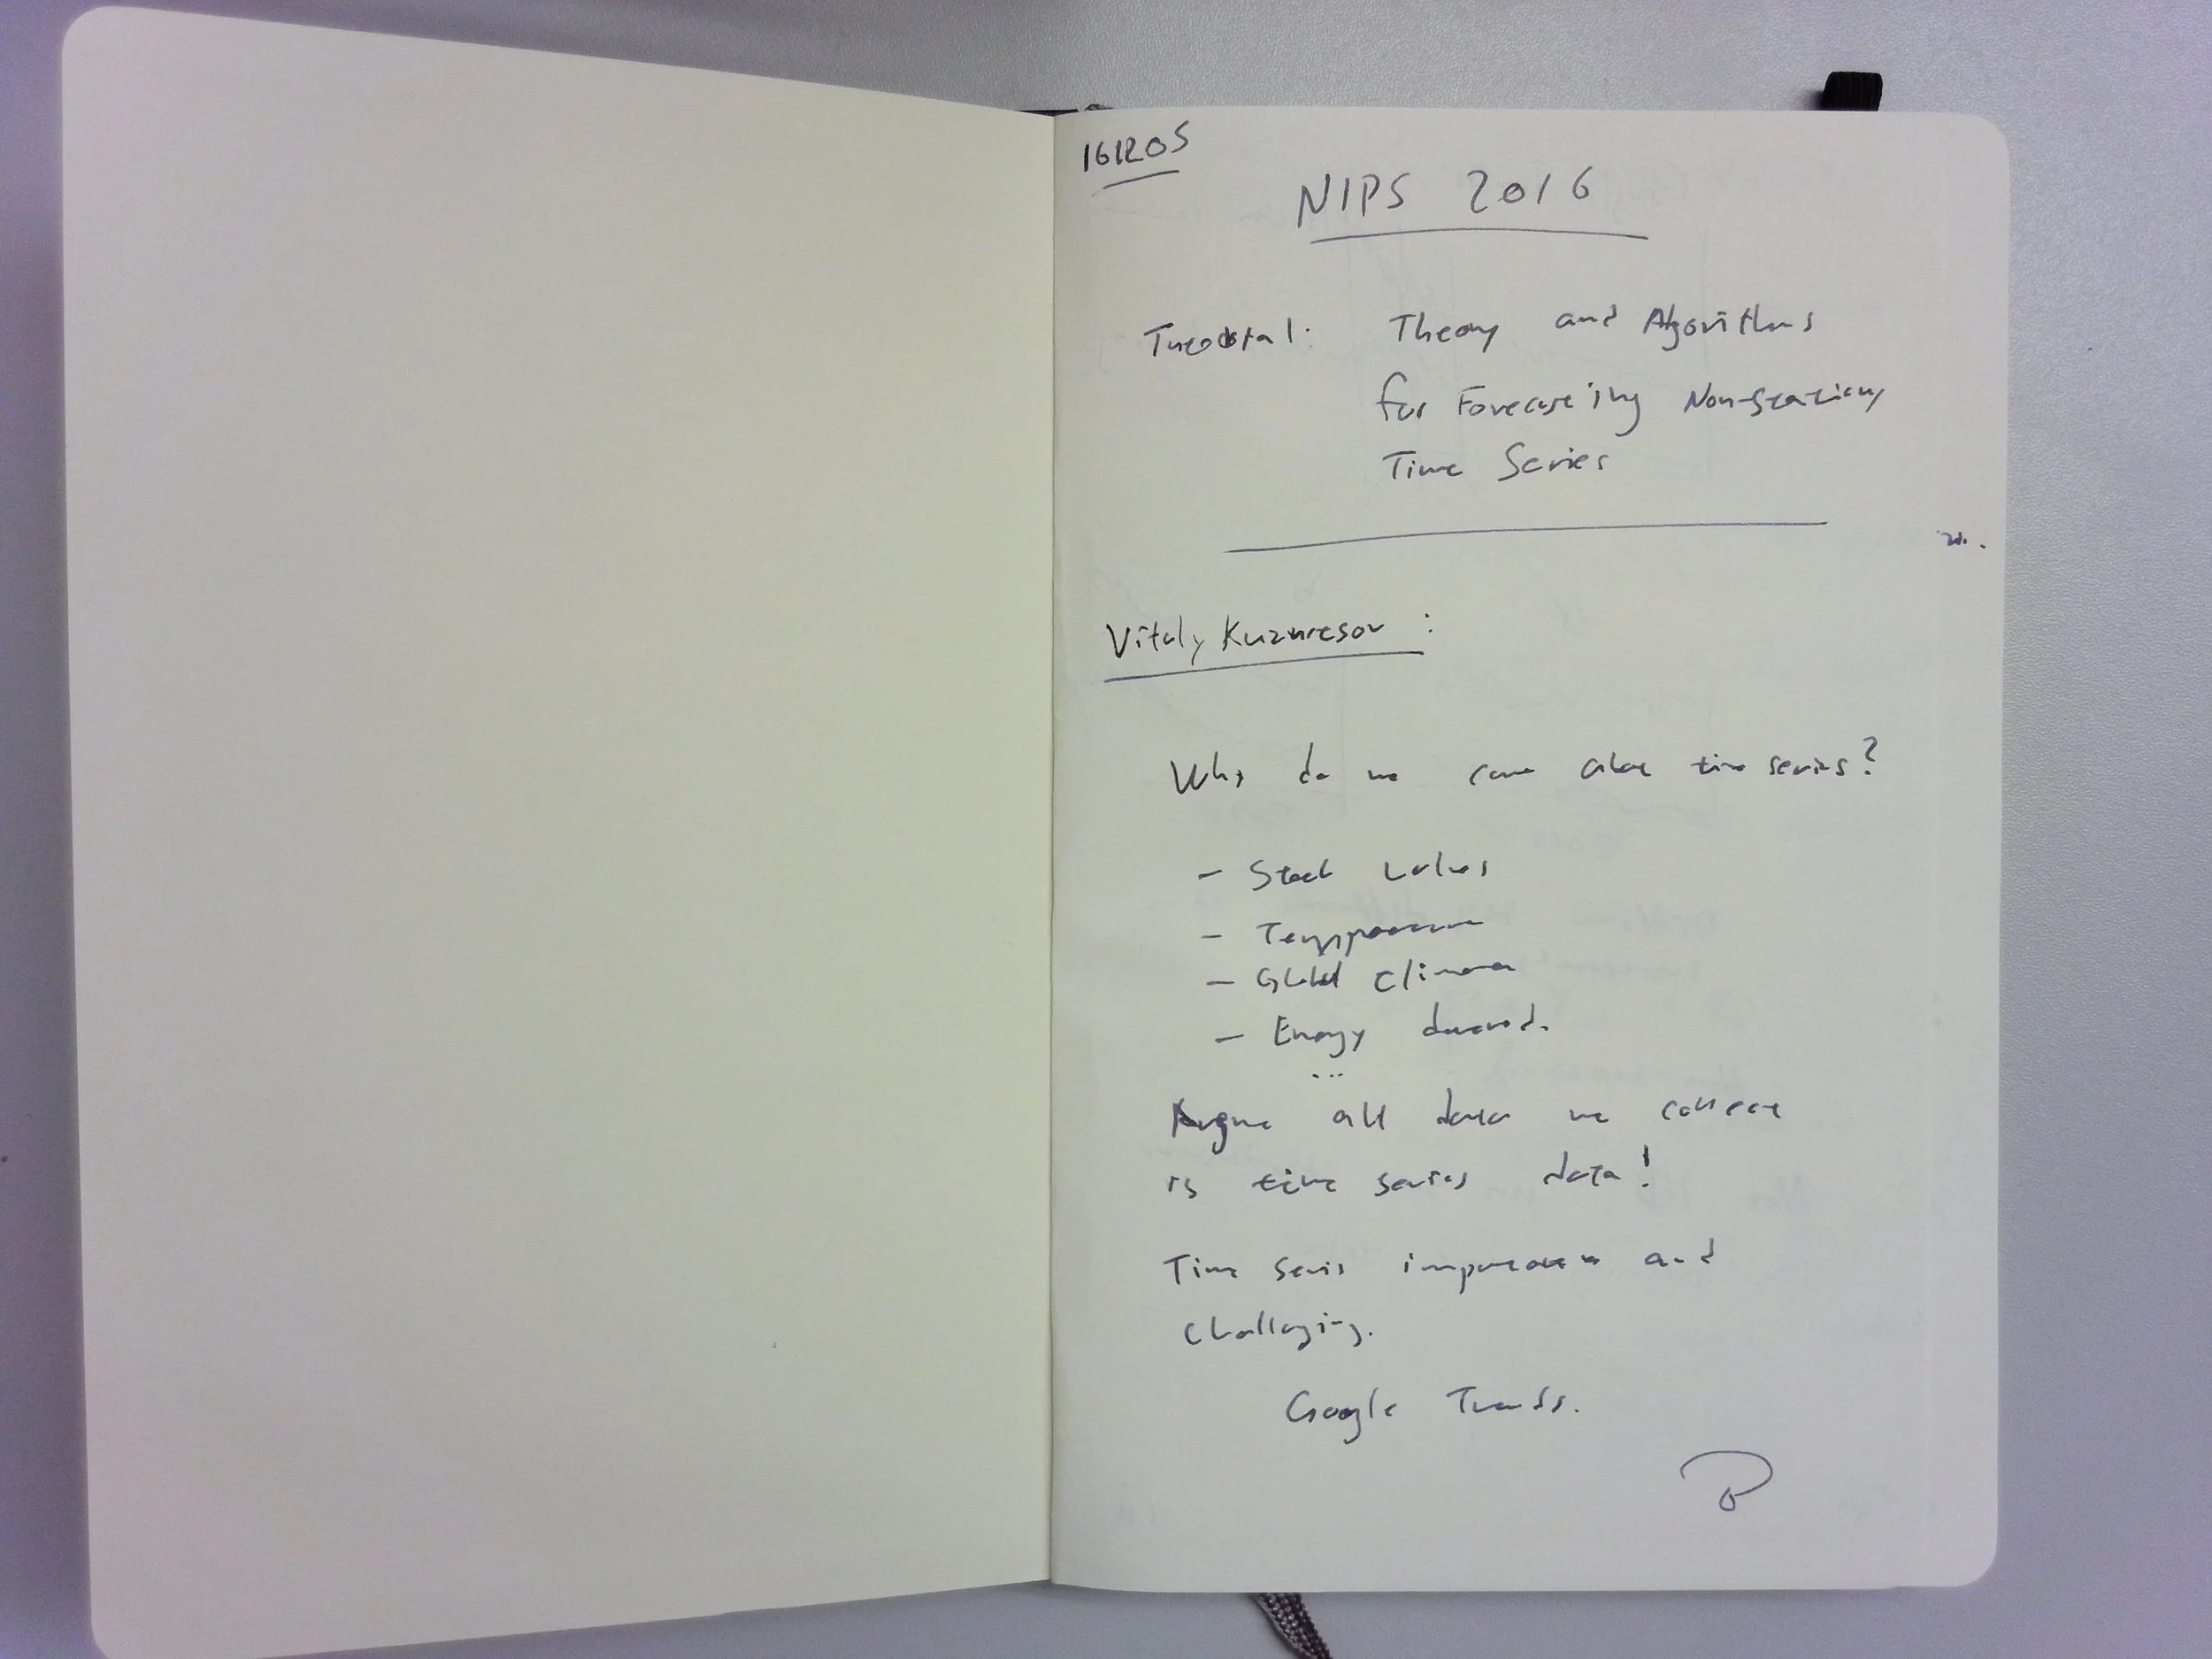 161205
NIPS 2016
Tutorial: Theory and Algorithms
for Forecasting Non-Stationary
Time Series
Vitaly Kuznetsov :
Why do we care about time series?
- Stock values
- Temperature
- Global Climate
- Energy demand.
...
Argue all data we collect
is time series data!
Time series important and
challenging.
Google Trends.